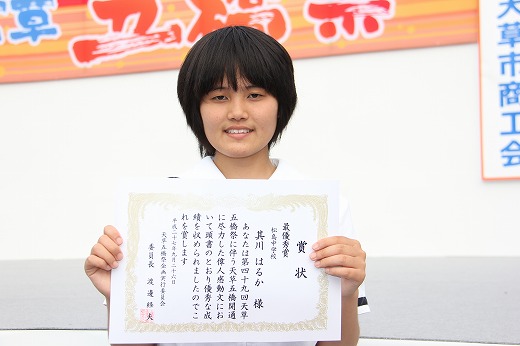 天草五橋祭
天草市商工会
賞状
最優秀賞
松島中学校
其川 はるか 様
あなたは第四十九回天草
五橋祭に伴う天草五橋開通
に尽力した偉人感動文にお
いて頭書のとおり優秀な成
績を収められましたのでこ
れを賞します
平成二十七年九月二十六日
天草五橋祭企画実行委員会
委員長 渡邊
夫